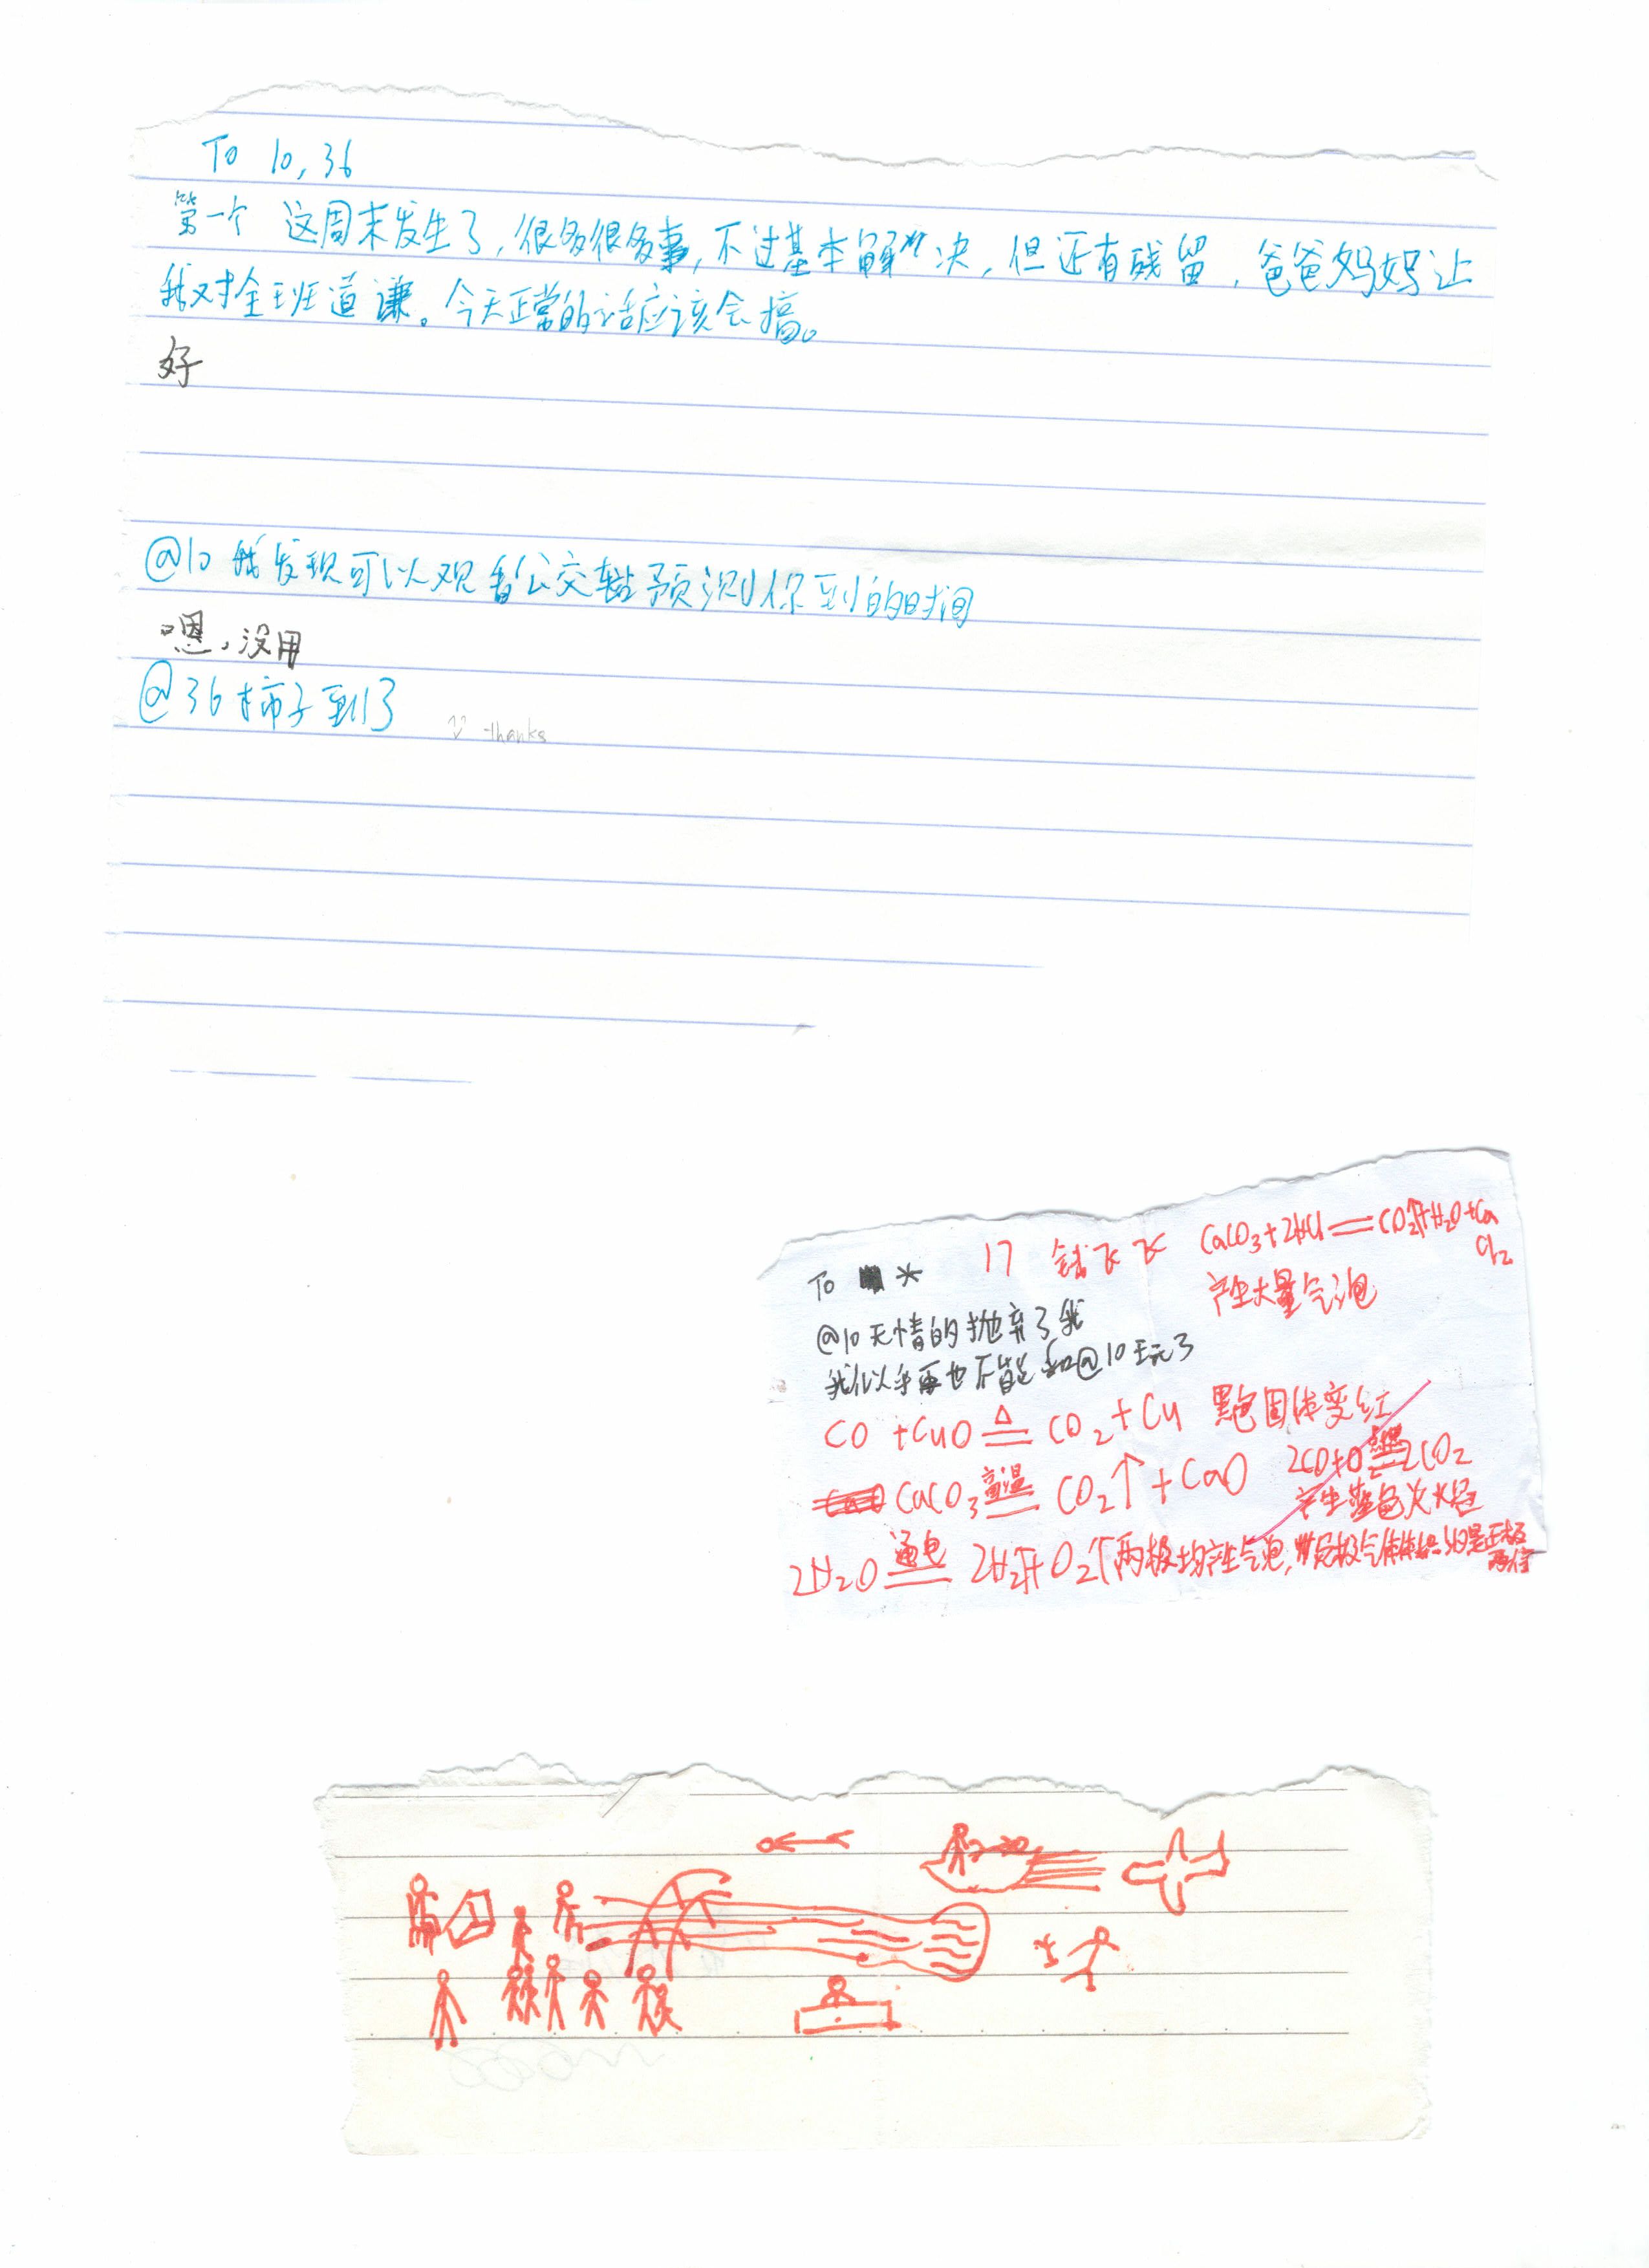 To 10,36
第一个 这周末发生了,很多很多事,不过基本解决,但还有残留,爸爸妈妈让
我对全班道谦。今天正常的话应该会搞。
好
@10 我发现可以观看公交车站预测你到的时间
嗯,没用
@36 柿子到了
thanks
17 钱飞飞 CaCO₃+2HCl=CO₂↑+H₂O+Ca
Cl₂
产生大量气泡
To *
@10无情的抛弃了我
我以后再也不能和@10玩了
CO+CuO △ CO₂+Cu 黑色固体变红
CaCO₃ 高温 CO₂↑+CaO
2CO+O₂ 点燃 2CO₂
产生蓝色火焰
2H₂O 通电 2H₂↑+O₂↑ 两极均产生气泡,负极气体体积是正极
两倍